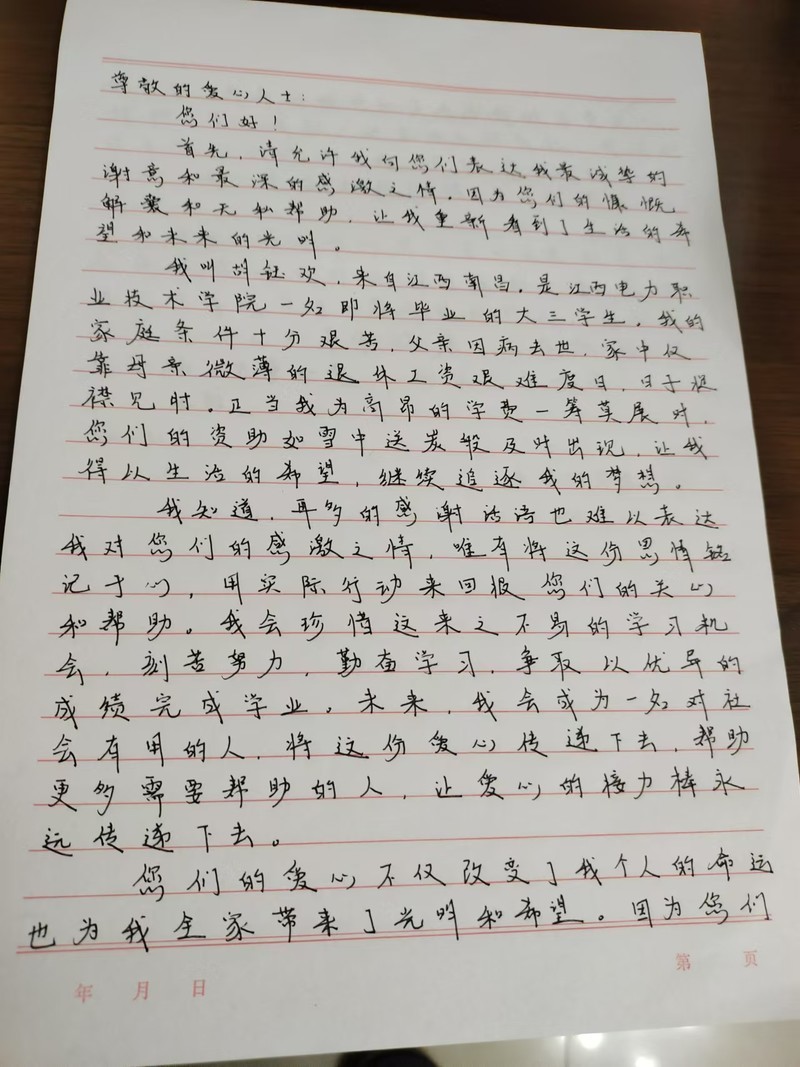 尊敬的爱心人士：
您们好！
首先，请允许我向您们表达我最诚挚的
谢意和最深的感激之情，因为您们的慷慨
解囊和无私帮助，让我重新看到了生活的希
望和未来的光明。
我叫胡钰欢，来自江西南昌，是江西电力职
业技术学院一名即将毕业的大三学生，我的
家庭条件十分艰苦，父亲因病去世，家中仅
靠母亲微薄的退休工资艰难度日，日子捉
襟见肘。正当我为高昂的学费一筹莫展时，
您们的资助如雪中送炭般及时出现，让我
得以生活的希望，继续追逐我的梦想。
我知道，再多的感谢话语也难以表达
我对您们的感激之情，唯有将这份恩情铭
记于心，用实际行动来回报您们的关心
和帮助。我会珍惜这来之不易的学习机
会，刻苦努力，勤奋学习，争取以优异的
成绩完成学业。未来，我会成为一名对社
会有用的人，将这份爱心传递下去，帮助
更多需要帮助的人，让爱心的接力棒永
远传递下去。
您们的爱心不仅改变了我个人的命运
也为我全家带来了光明和希望。因为您们
年 月 日 第 页